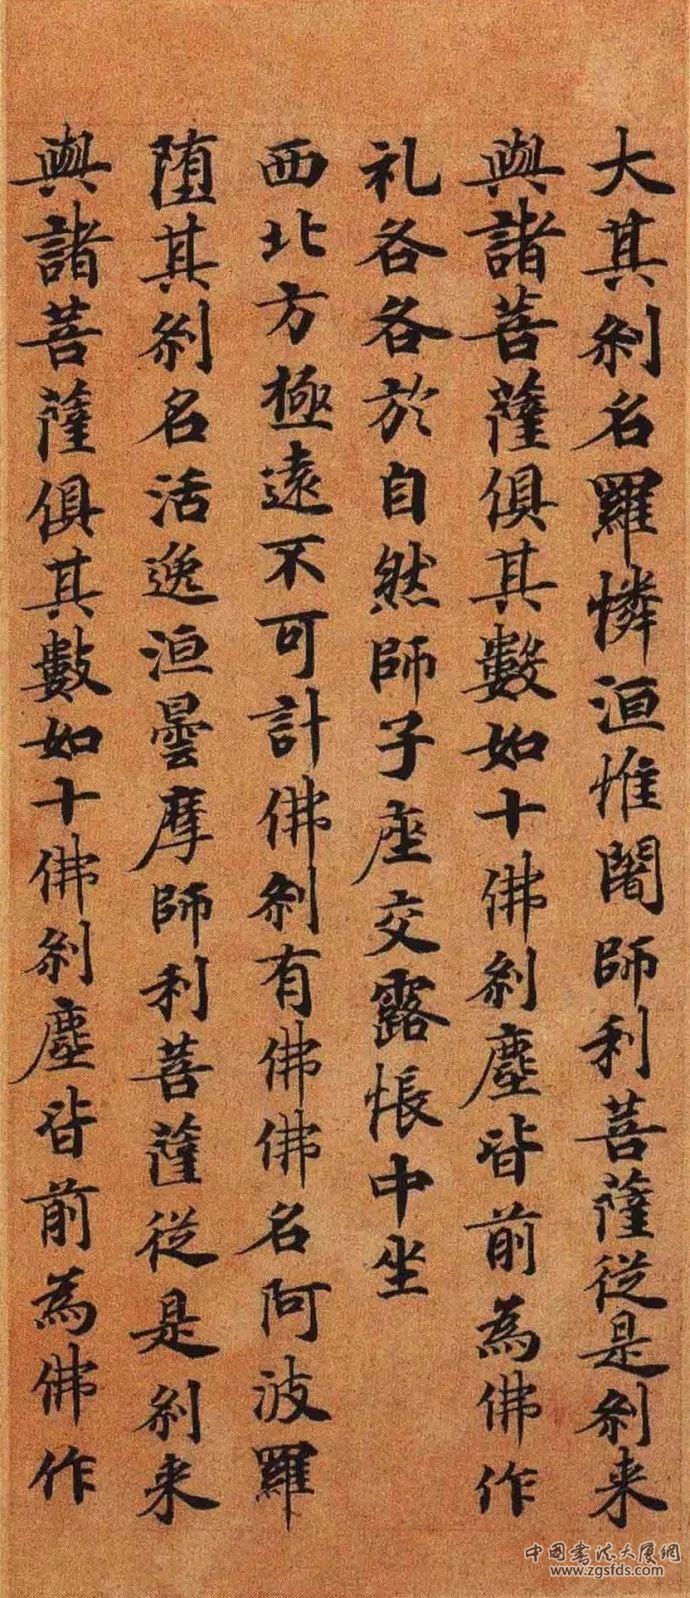 大其刹名羅憐洹惟闍師利菩薩從是刹来
與諸菩薩俱其數如十佛刹塵皆前為佛作
礼各各於自然師子座交露帳中坐
西北方極遠不可計佛刹有佛佛名阿波羅
堕其刹名活逸洹曇摩師利菩薩從是刹来
與諸菩薩俱其數如十佛刹塵皆前為佛作
中國書法大厦網
www.zgsfds.com